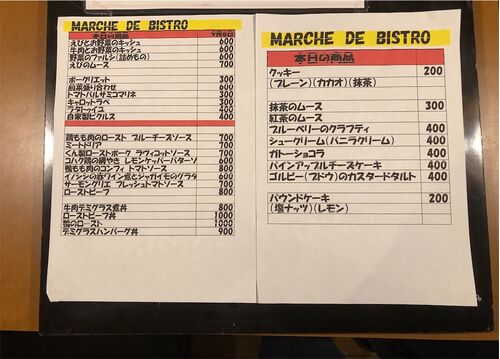 MARCHE DE BISTRO
本日の商品
えびとお野菜のキッシュ 600
牛肉とお野菜のキッシュ 600
野菜のファルシ(詰めもの) 600
えびのムース 700
ポークリエット 300
前菜盛り合わせ 600
トマトバルサミコマリネ 300
キャロットラペ 300
ラタトゥイユ 400
自家製ピクルス 400
鶏もも肉のロースト ブルーチーズソース 700
ミートドリア 700
くん製ローストポーク ラヴィゴットソース 700
コハク鶏の網やき レモンケッパーバターソ 600
鴨もも肉のコンフィ トマトソース 800
イノシシの赤ワイン煮とジャガイモのグラタ 600
サーモングリエ フレッシュトマトソース 700
ローストビーフ 800
牛肉デミグラス煮丼 800
ローストビーフ丼 1000
鴨のロースト 1000
デミグラスハンバーグ丼 900
MARCHE DE BISTRO
本日の商品
クッキー 200
(プレーン)(カカオ)(抹茶)
抹茶のムース 300
紅茶のムース
ブルーベリーのクラフティ 400
シュークリーム(バニラクリーム) 400
ガトーショコラ 400
パインアップルチーズケーキ 400
ゴルビー(ブドウ)のカスタードタルト 400
パウンドケーキ 200
(塩ナッツ)(レモン)